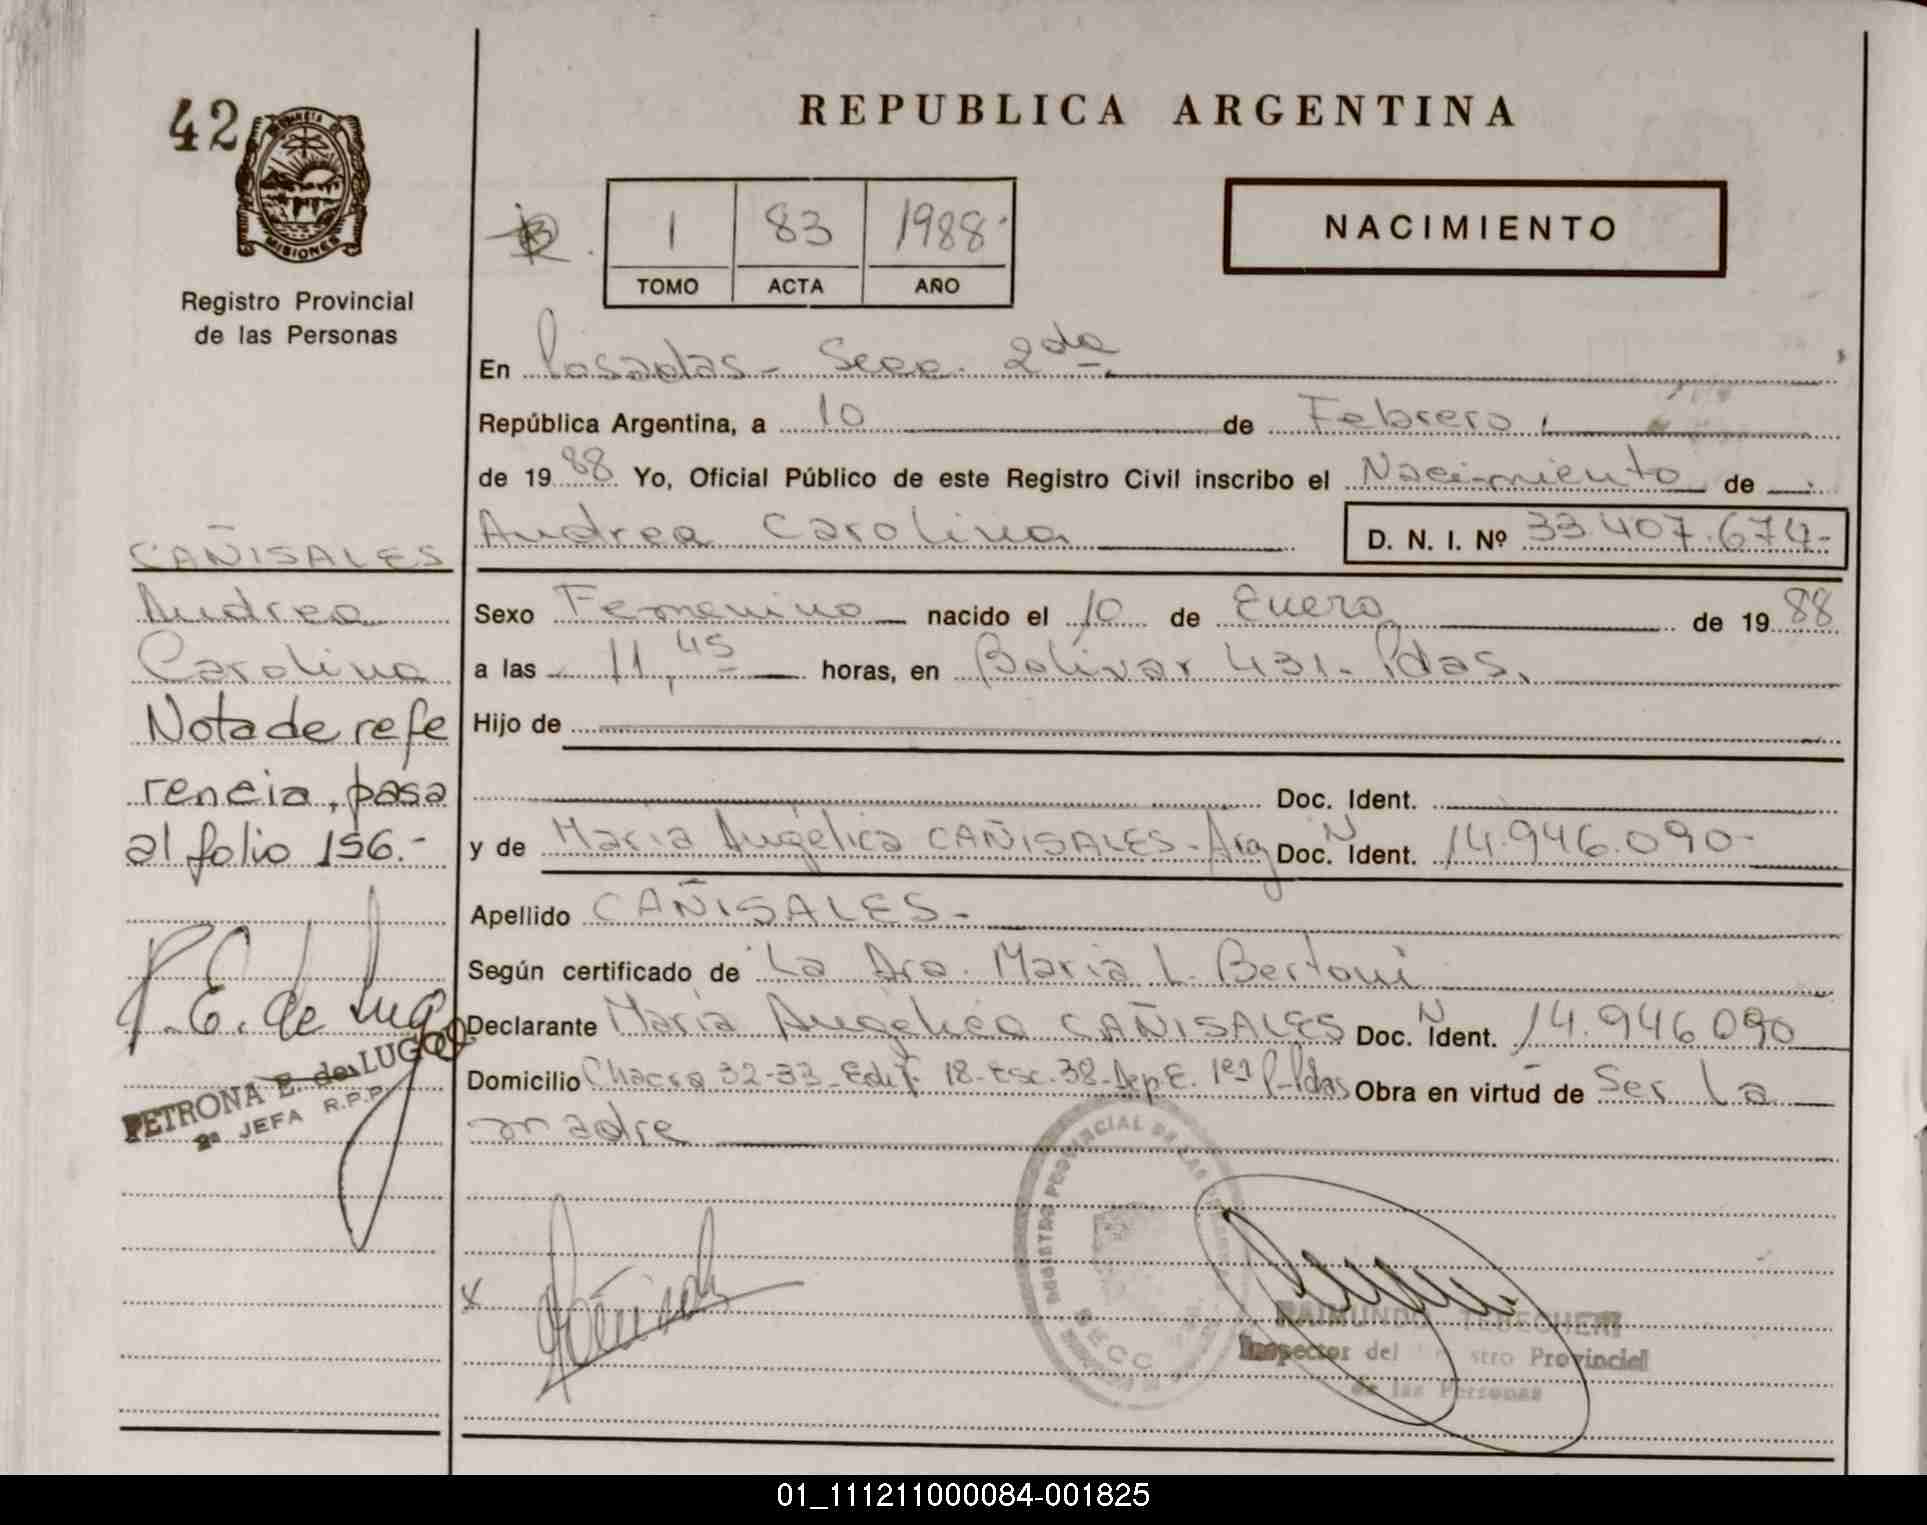 42
PROVINCIA DE
MISIONES
Registro Provincial
de las Personas
REPUBLICA ARGENTINA
1 83 1988.
TOMO ACTA AÑO
NACIMIENTO
En Posadas - Secc. 2da.
República Argentina, a 10 de Febrero,
de 1988 Yo, Oficial Público de este Registro Civil inscribo el Nacimiento de
Andrea Carolina D. N. I. Nº 33.407.674-
Sexo Femenino nacido el 10 de Enero de 1988
a las 11,45 horas, en Bolívar 431- Pdas.
Hijo de
Doc. Ident.
y de María Angélica CAÑISALES - Arg Doc. N Ident. 14.946.090-
Apellido CAÑISALES-
Según certificado de La Dra. María L. Bertoni
Declarante María Angélica CAÑISALES Doc. N Ident. 14.946.090
Domicilio Chacra 32-33-Edif. 18-Esc. 38-Dep. E. 1er P-Pdas Obra en virtud de Ser la
madre
CAÑISALES
Andrea
Carolina
Nota de refe
rencia, pasa
al folio 156.-
P. E. de Lugo
PETRONA E. de LUGO
2ª JEFA R.P.P.
x
REGISTRO PROVINCIAL DE LAS
SECC
RAIMUNDO
Inspector del Provincial
de las Personas
01_111211000084-001825